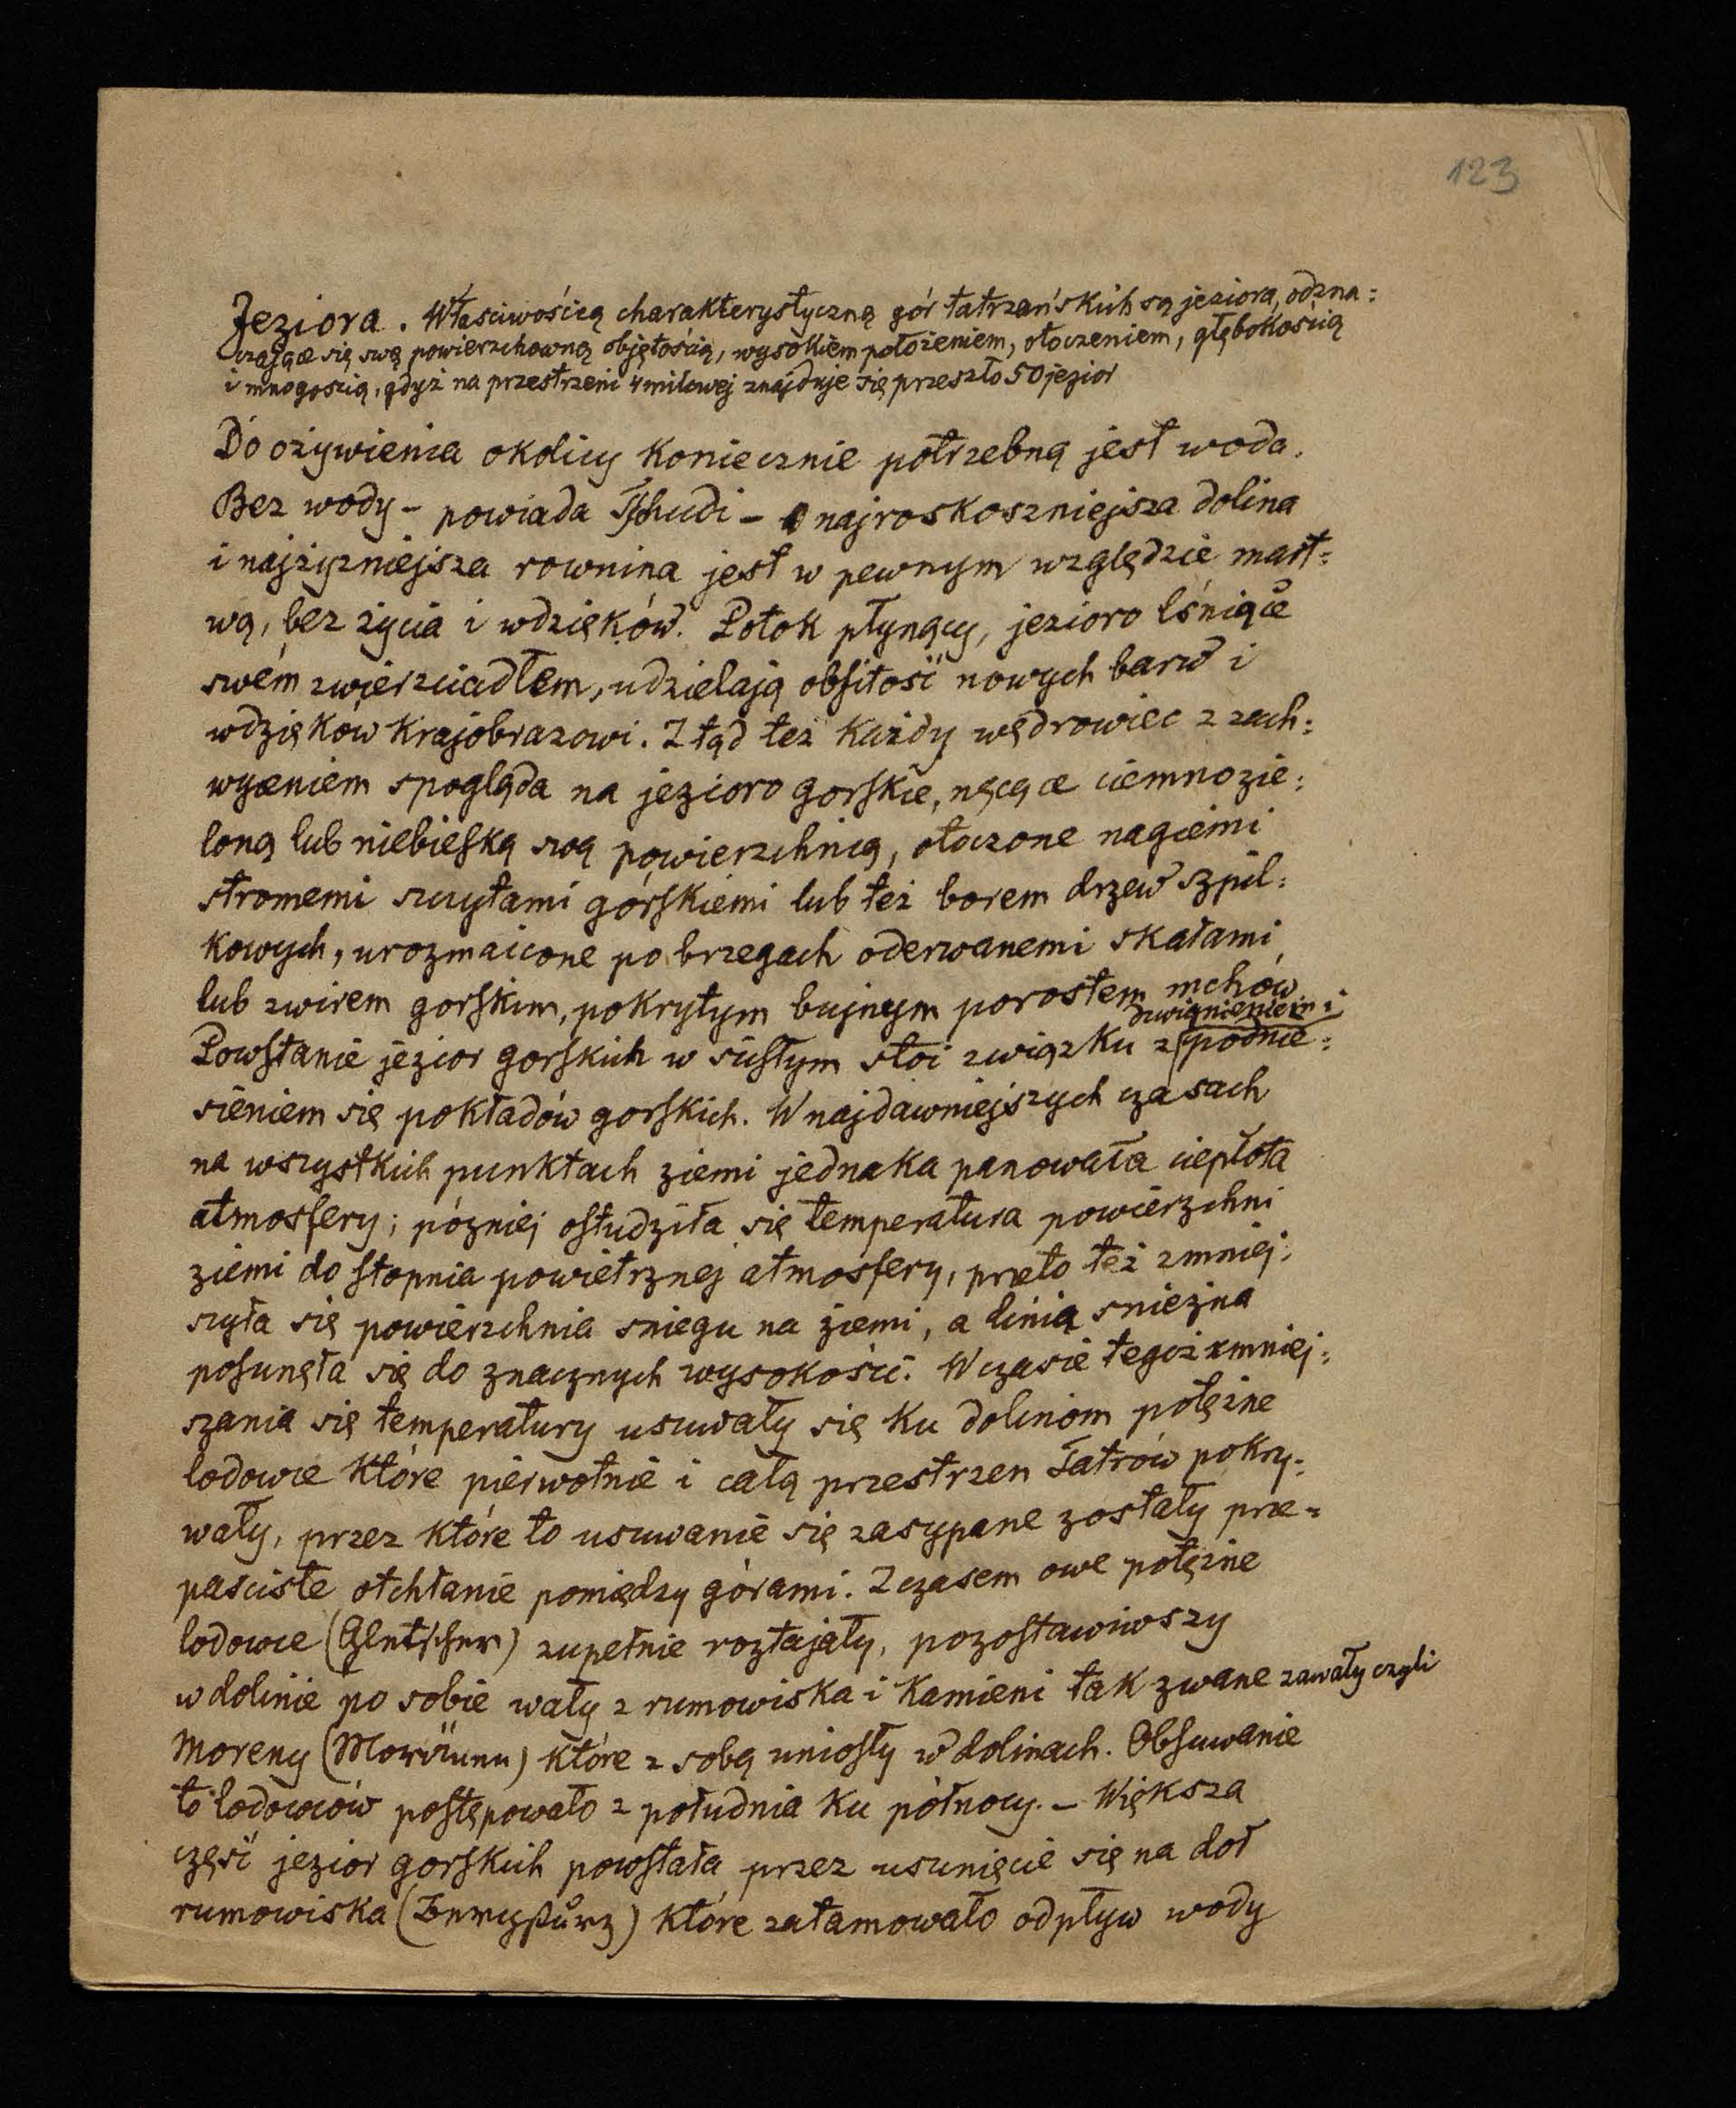 123
Jeziora. Właściwością charakterystyczną gór tatrzańskich są jeziora, odzna=
czające się swą powierzchowną objętością, wysokiem położeniem, otoczeniem, głębokością
i mnogością, gdyż na przestrzeni 4 milowej znajduje się przeszło 50 jezior
Do ożywienia okolicy koniecznie potrzebną jest woda.
Bez wody – powiada Tschudi – najroskoszniejsza dolina
i najżyzniejsza rownina jest w pewnym względzie mart=
wą, bez życia i wdzięków. Potok płynący, jezioro lśniące
swém zwierzciadłem, udzielają obfitość nowych barw i
wdzięków krajobrazowi. Ztąd też każdy wędrowiec z zach=
wyceniem spogląda na jezioro gorskie, nęcące ciemnozie=
loną lub niebieską swą powierzchnią, otoczone nagiemi
stromemi szczytami górskiemi lub też borem drzew szpil=
kowych, urozmaicone po brzegach oderwanemi skałami
lub zwirem gorskim, pokrytym bujnym porostem mchów.
dzwignieniem i
Powstanie jezior gorskich w scisłym stoi związku z podnie=
sieniem się pokładów gorskich. W najdawniejszych czasach
na wszystkich punktach ziemi jednaka panowała ciepłota
atmosfery; pózniej ostudziła się temperatura powierzchni
ziemi do stopnia powietrznej atmosfery, przeto też zmniej=
szyła się powierzchnia sniegu na ziemi, a linia sniezna
posunęła się do znacznych wysokości. W czasie tegoż zmniej=
szania się temperatury usuwały się ku dolinom potężne
lodowce które pierwotnie i całą przestrzen Tatrów pokry=
wały, przez które to usuwanie się zasypane zostały prze=
pasciste otchłanie pomiędzy górami. Z czasem owe potężne
lodowce (Gletscher) zupełnie roztajały, pozostawiwszy
w dolinie po sobie wały z rumowiska i kamieni tak zwane zawały czyli
moreny (Moränen) które z sobą uniosły w dolinach. Obsuwanie
to lodowców postępowało z południa ku północy. – Większa
część jezior gorskich powstała przez usunięcie się na doł
rumowiska (Bergsturz) które zatamowało odpływ wody